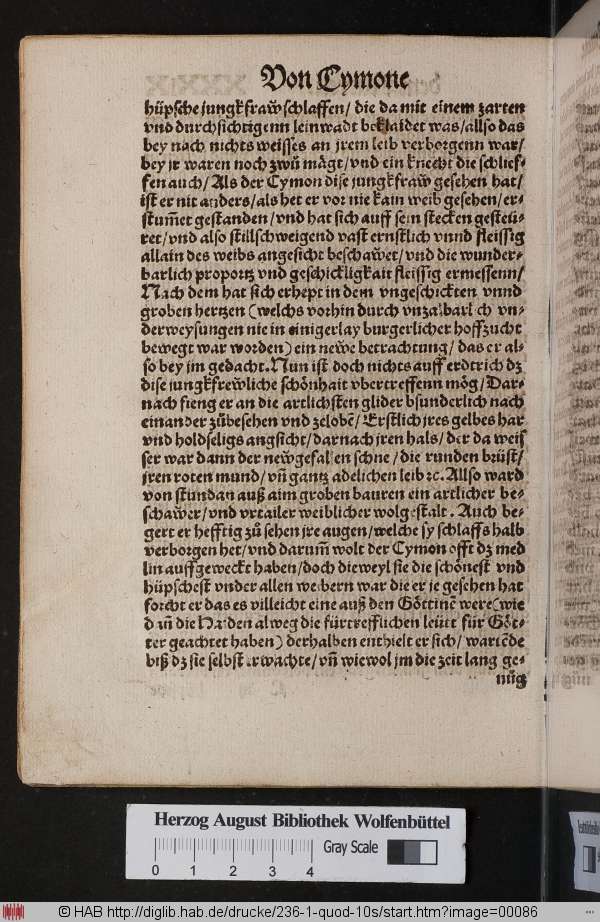 Von Cymone
hüpsche jungkfraw schlaffen / die da mit einem zarten
vnd durchsichtigenn leinwadt beklaidet was / allso das
bey nach nichts weisses an jrem leib verborgenn war /
bey jr waren noch zwů mägt / vnd ein knecht die schlief-
fen auch / Als der Cymon dise jungkfraw gesehen hat /
ist er nit anders / als het er vor nie kain weib gesehen / er-
stum̃et gestanden / vnd hat sich auff sein stecken gesteü-
ret / vnd also stillschweigend vast ernstlich vnnd fleissig
allain des weibs angesicht beschawet / vnd die wunder-
barlich proportz vnd geschickligkait fleissig ermessenn /
Nach dem hat sich erhept in dem vngeschickten vnnd
groben hertzen (welchs vorhin durch vnzalbarlich vn-
derweysungen nie in einigerlay burgerlicher hoffzucht
bewegt war worden) ein newe betrachtung / das er al-
so bey jm gedacht. Nun ist doch nichts auff erdtrich dz
dise jungkfrewliche schönhait vbertreffenn mög / Dar-
nach fieng er an die artlichsten glider bsunderlich nach
einander zůbesehen vnd zelobẽ / Erstlich jres gelbes har
vnd holdseligs angsicht / darnach jren hals / der da weis
ser war dann der newgefallen schne / die runden brüst /
jren roten mund / vñ gantz adelichen leib ꝛc. Allso ward
von stundan auß aim groben bauren ein artlicher be-
schawer / vnd vrtailer weiblicher wolgestalt. Auch be-
gert er hefftig zů sehen jre augen / welche sy schlaffs halb
verborgen het / vnd darum̃ wolt der Cymon offt dz med
lin auffgeweckt haben / doch dieweyl sie die schönest vnd
hüpschest vnder allen weibern war die er je gesehen hat
forcht er das es villeicht eine auß den Göttinẽ were (wie
dañ die Haiden alweg die fürtrefflichen leütt für Göt-
ter geachtet haben) derhalben enthielt er sich / wartẽde
biß dz sie selbst erwachte / vñ wiewol jm die zeit lang ge-
nůg
Herzog August Bibliothek Wolfenbüttel
Gray Scale
0 1 2 3 4
© HAB http://diglib.hab.de/drucke/236-1-quod-10s/start.htm?image=00086